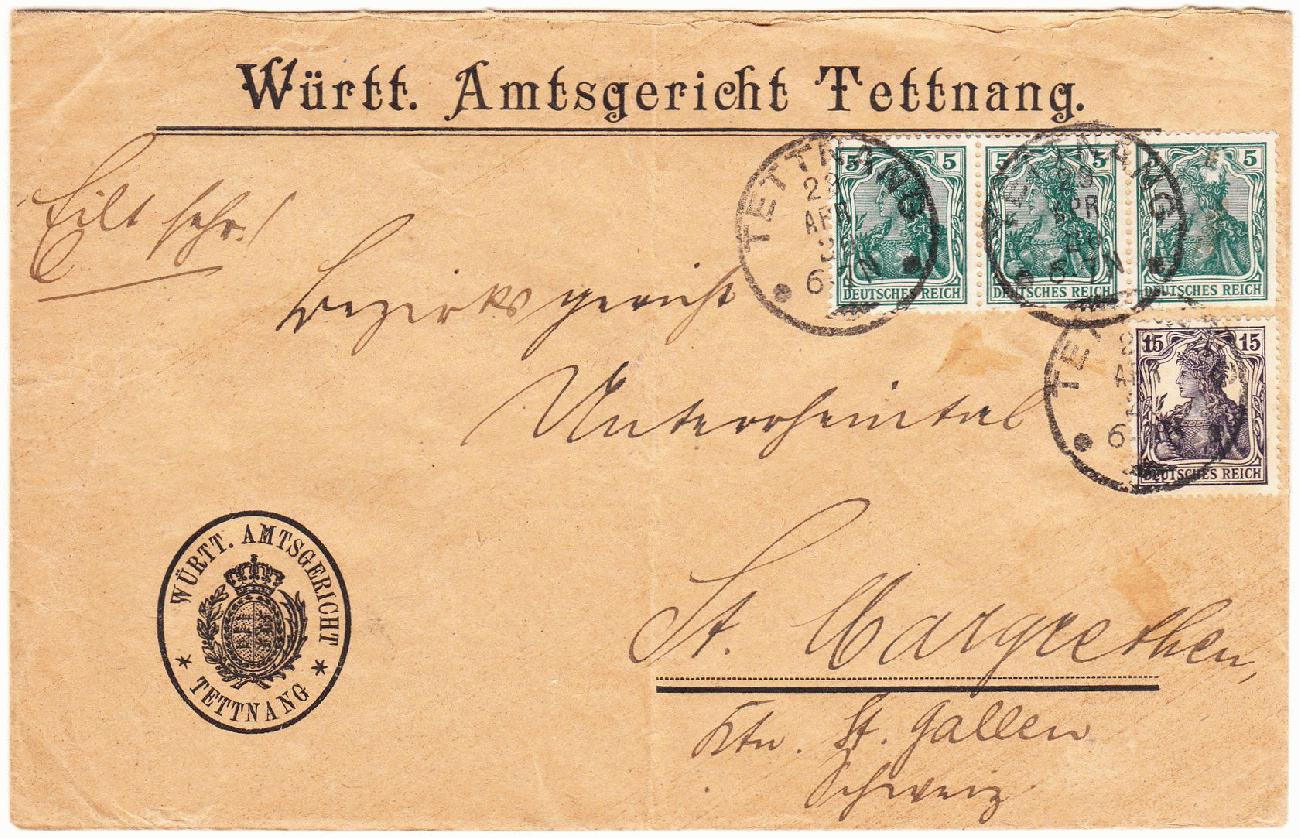 Württ. Amtsgericht Tettnang.
Eilt sehr!
Bezirksgericht
Unterrheintal
St. Margrethen,
Ktn. St. Gallen
Schweiz
5 5
DEUTSCHES REICH
5
DEUTSCHES REICH
5
DEUTSCHES REICH
15 15
DEUTSCHES REICH
TETTNANG
APR
TETTNANG
APR
WÜRTT. AMTSGERICHT
* TETTNANG *